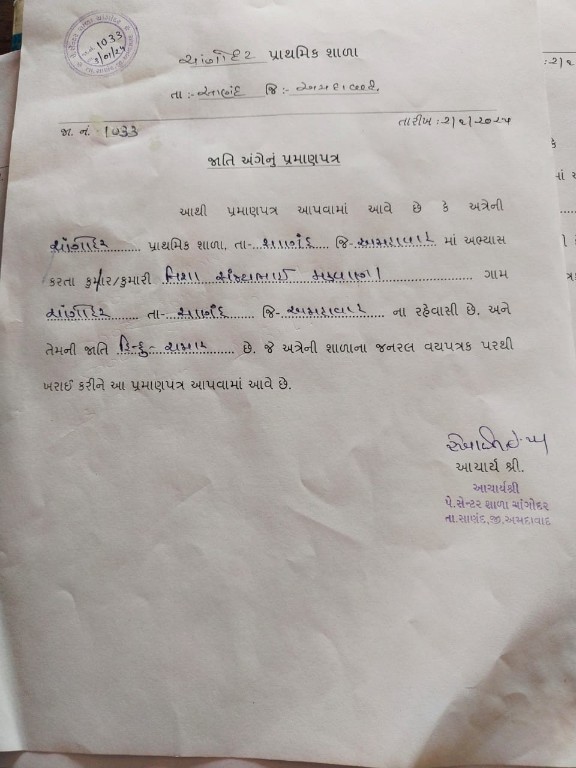 1033
ચાંગોદર પ્રાથમિક શાળા
તા :- સાણંદ જિ :- અમદાવાદ.
જા. નં. 1033 તારીખ :
જાતિ અંગેનું પ્રમાણપત્ર
આથી પ્રમાણપત્ર આપવામાં આવે છે કે અત્રેની
ચાંગોદર પ્રાથમિક શાળા, તા- સાણંદ જિ- અમદાવાદ માં અભ્યાસ
કરતા કુમાર/કુમારી નિશા સંજયભાઈ મકવાણા ગામ
ચાંગોદર તા- સાણંદ જિ- અમદાવાદ ના રહેવાસી છે. અને
તેમની જાતિ હિન્દુ - ચમાર છે. જે અત્રેની શાળાના જનરલ વયપત્રક પરથી
ખરાઈ કરીને આ પ્રમાણપત્ર આપવામાં આવે છે.
આચાર્ય શ્રી.
આચાર્યશ્રી
પે.સેન્ટર શાળા ચાંગોદર
તા.સાણંદ,જી.અમદાવાદ